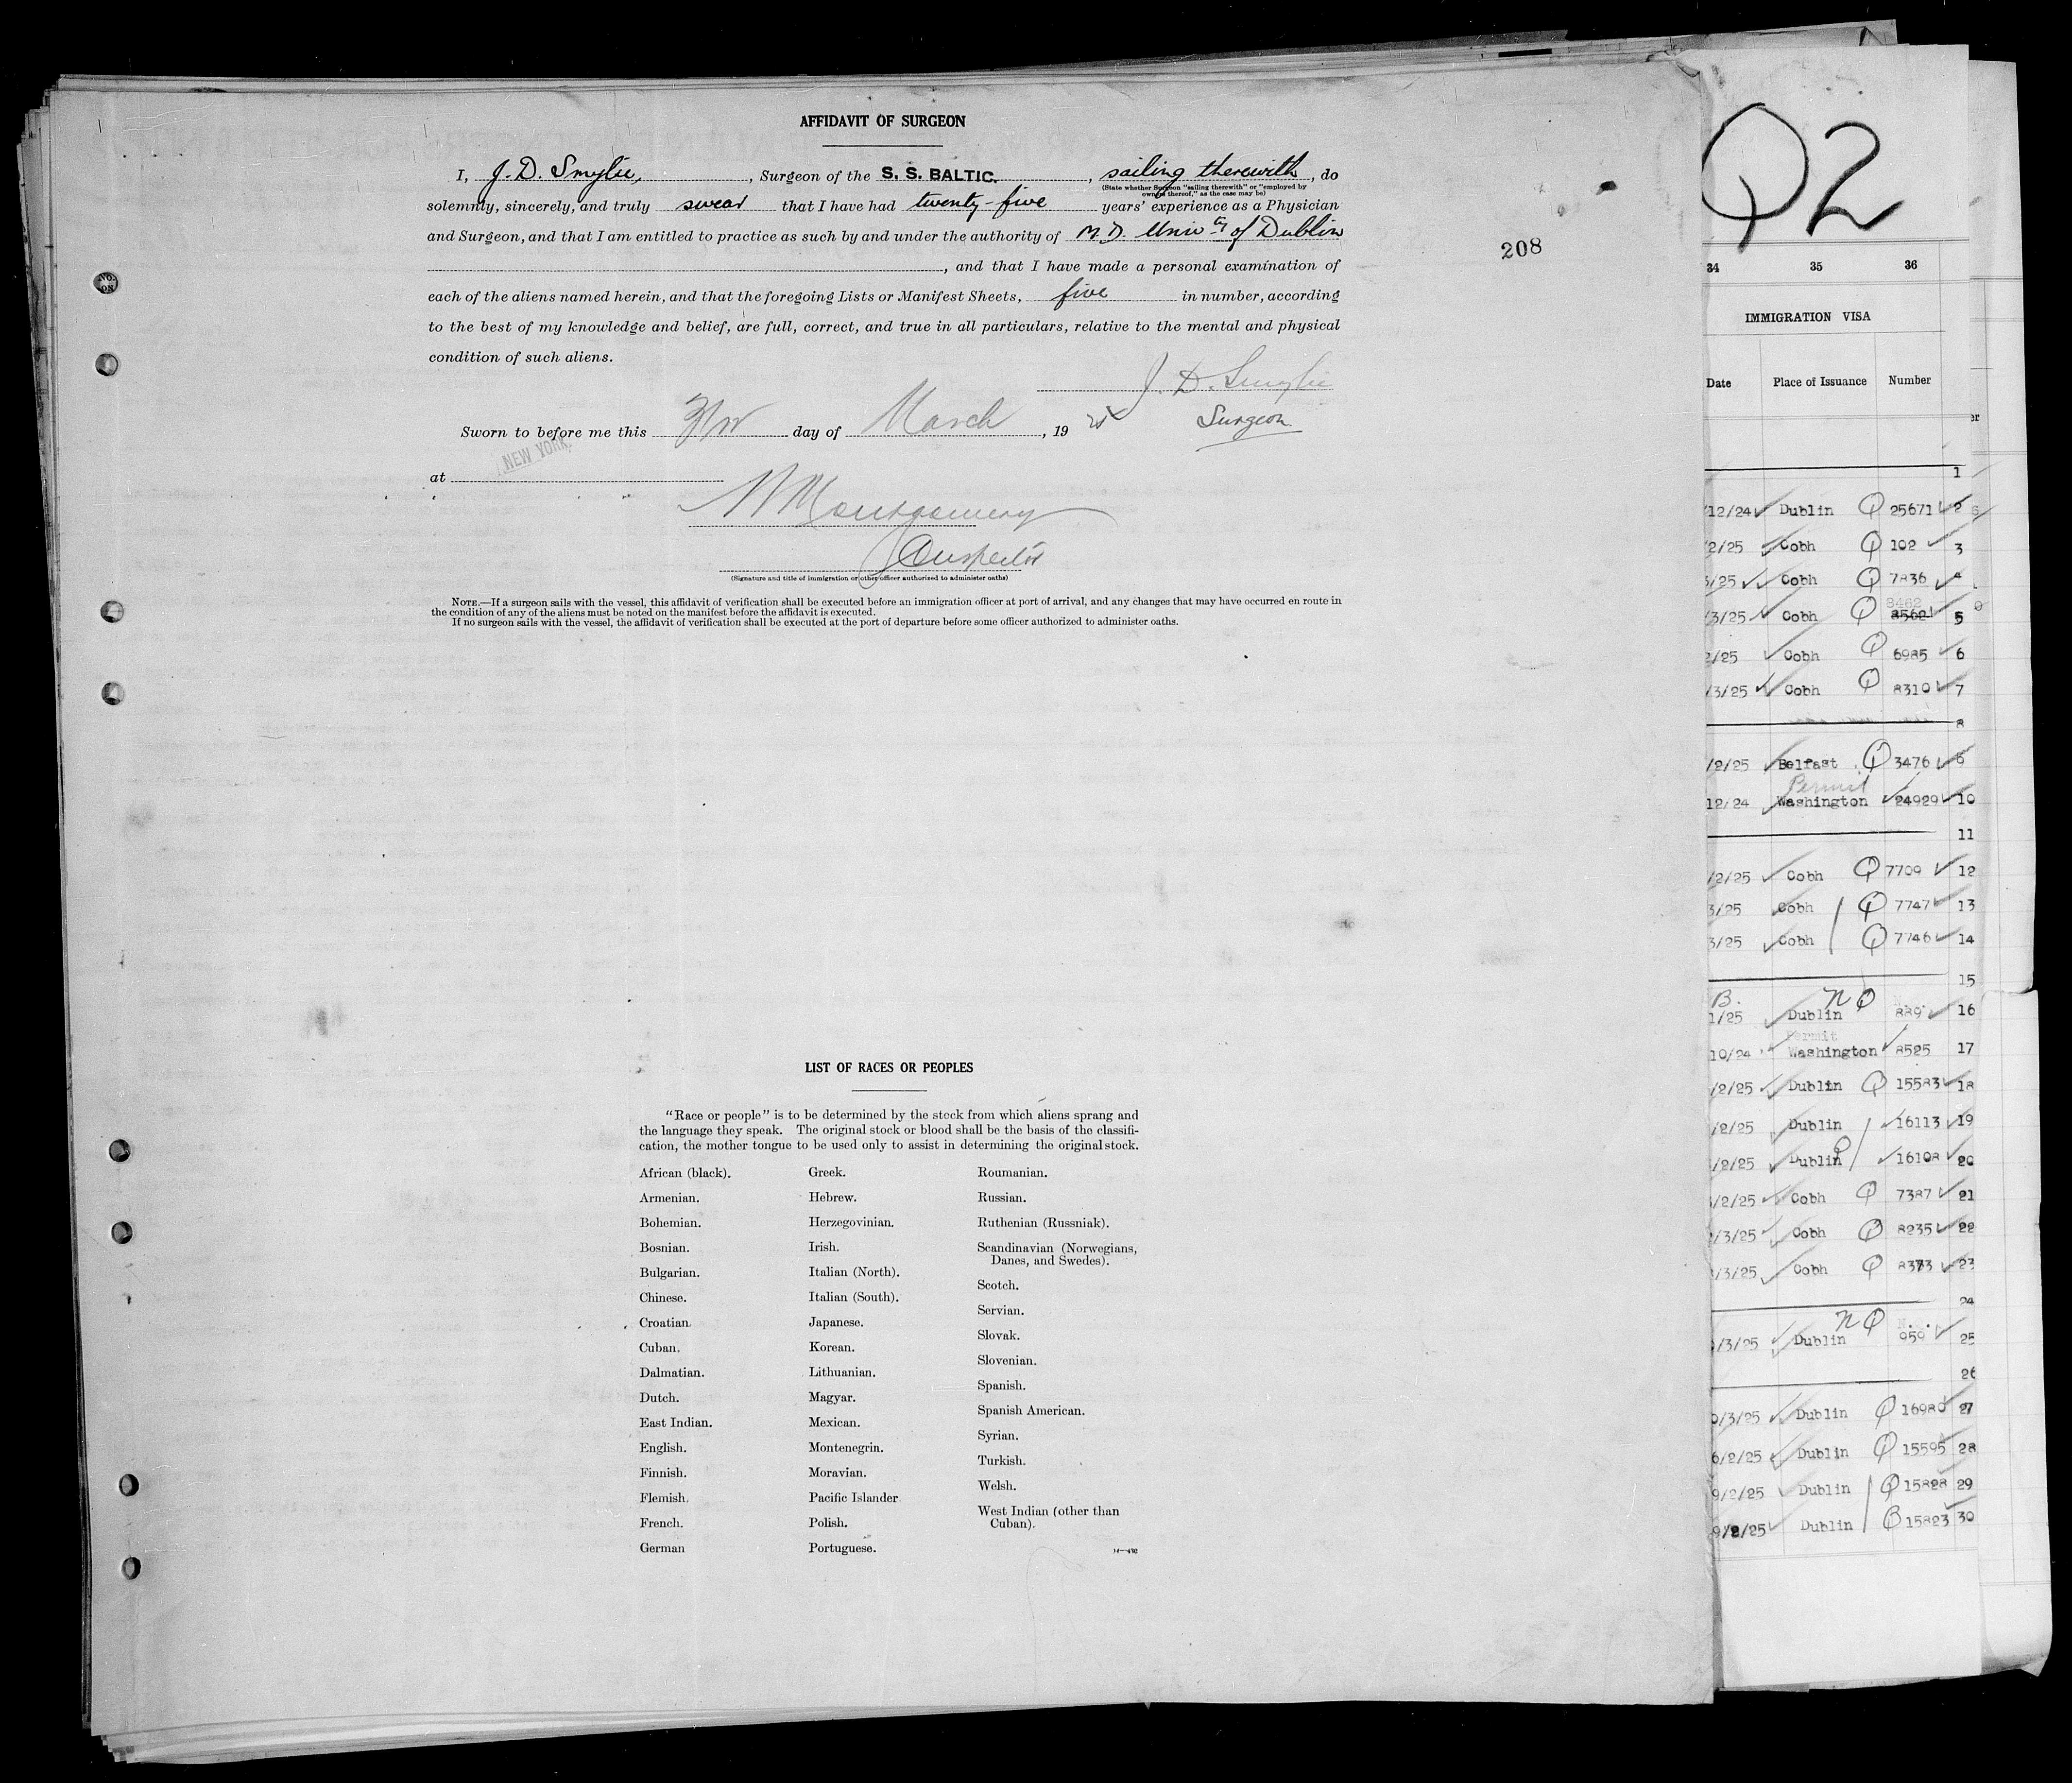 AFFIDAVIT OF SURGEON
I, J. D. Smylie, , Surgeon of the S. S. BALTIC. , sailing therewith , do
(State whether Surgeon "sailing therewith" or "employed by
owners thereof," as the case may be)
solemnly, sincerely, and truly swear that I have had twenty-five years' experience as a Physician
and Surgeon, and that I am entitled to practice as such by and under the authority of M.D. Univty of Dublin
, and that I have made a personal examination of
each of the aliens named herein, and that the foregoing Lists or Manifest Sheets, five in number, according
to the best of my knowledge and belief, are full, correct, and true in all particulars, relative to the mental and physical
condition of such aliens.
J. D. Smylie
Surgeon
Sworn to before me this day of March , 19
NEW YORK
at
Montgomery
Inspector
(Signature and title of immigration or other officer authorized to administer oaths)
NOTE.—If a surgeon sails with the vessel, this affidavit of verification shall be executed before an immigration officer at port of arrival, and any changes that may have occurred en route in
the condition of any of the aliens must be noted on the manifest before the affidavit is executed.
If no surgeon sails with the vessel, the affidavit of verification shall be executed at the port of departure before some officer authorized to administer oaths.
208
LIST OF RACES OR PEOPLES
"Race or people" is to be determined by the stock from which aliens sprang and
the language they speak. The original stock or blood shall be the basis of the classifi-
cation, the mother tongue to be used only to assist in determining the original stock.
African (black).
Armenian.
Bohemian.
Bosnian.
Bulgarian.
Chinese.
Croatian.
Cuban.
Dalmatian.
Dutch.
East Indian.
English.
Finnish.
Flemish.
French.
German
Greek.
Hebrew.
Herzegovinian.
Irish.
Italian (North).
Italian (South).
Japanese.
Korean.
Lithuanian.
Magyar.
Mexican.
Montenegrin.
Moravian.
Pacific Islander
Polish.
Portuguese.
Roumanian.
Russian.
Ruthenian (Russniak).
Scandinavian (Norwegians,
Danes, and Swedes).
Scotch.
Servian.
Slovak.
Slovenian.
Spanish.
Spanish American.
Syrian.
Turkish.
Welsh.
West Indian (other than
Cuban).
Q2
34 35 36
IMMIGRATION VISA
Date Place of Issuance Number
1
/12/24 Dublin Q 25671 2
2/25 Cobh Q 102 3
3/25 Cobh Q 7836 4
8462
/3/25 Cobh Q 8562 5
2/25 Cobh Q 6985 6
/3/25 Cobh Q 8310 7
8
/2/25 Belfast Q 3476 9
Permit
12/24 Washington 24929 10
11
/2/25 Cobh Q 7709 12
3/25 Cobh Q 7747 13
3/25 Cobh Q 7746 14
15
B. NQ
1/25 Dublin 889 16
Permit
10/24 Washington 8525 17
/2/25 Dublin Q 15583 18
/2/25 Dublin 16113 19
/2/25 Dublin Q 16108 20
/2/25 Cobh Q 7387 21
/3/25 Cobh Q 8235 22
/3/25 Cobh Q 8373 23
24
NQ
/3/25 Dublin 959 25
26
0/3/25 Dublin Q 16980 27
6/2/25 Dublin Q 15595 28
9/2/25 Dublin Q 15828 29
9/2/25 Dublin Q 15823 30